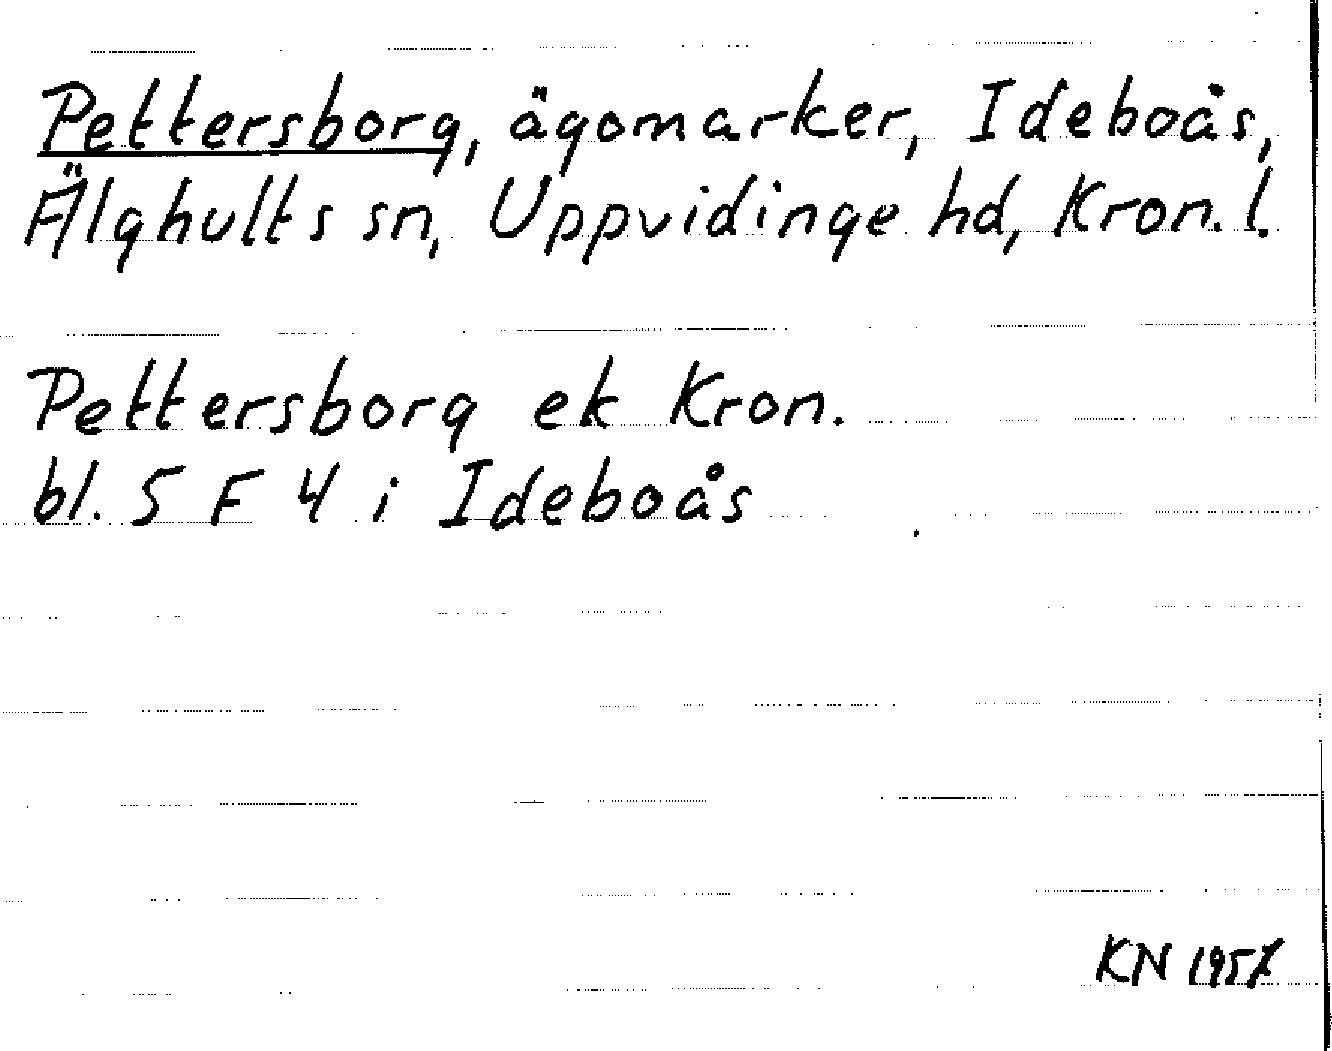 Pettersborg, ägomarker, Ideboås,
Älghults sn, Uppvidinge hd, Kron. l.
Pettersborg ek Kron.
bl. 5 F 4 i Ideboås
KN 1957